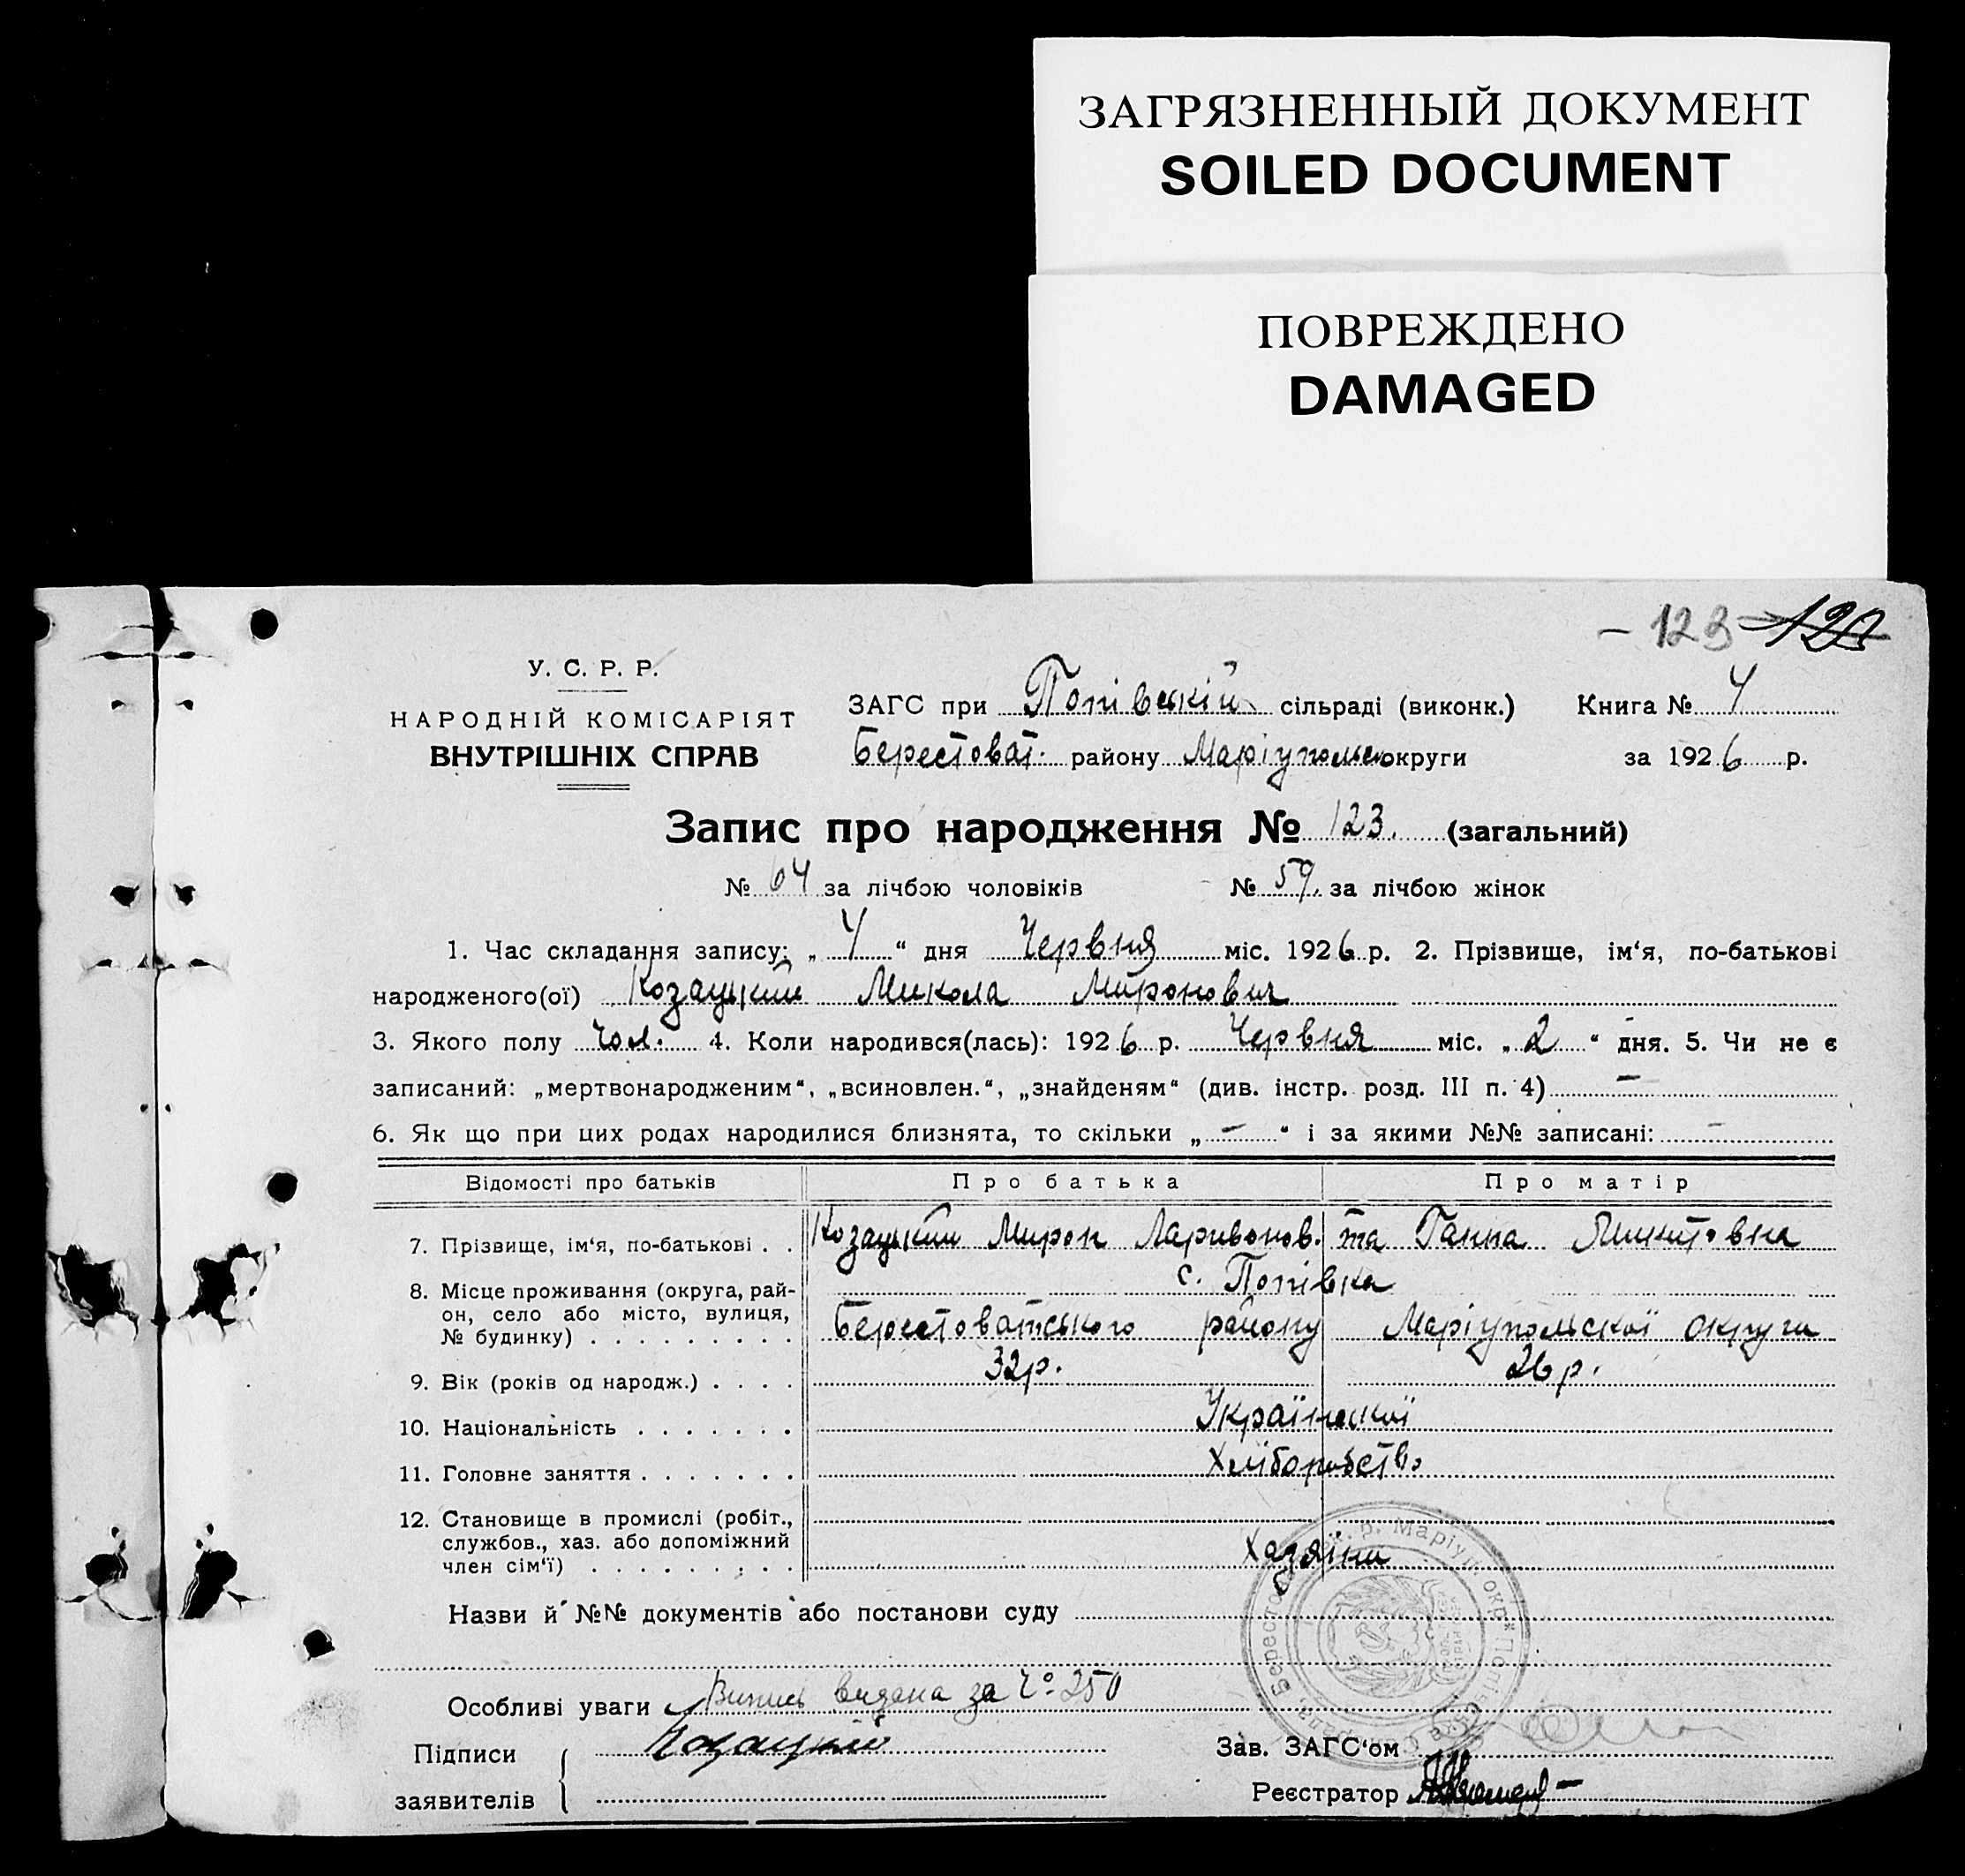 ЗАГРЯЗНЕННЫЙ ДОКУМЕНТ
SOILED DOCUMENT
ПОВРЕЖДЕНО
DAMAGED
– 123
У. С. Р. Р.
НАРОДНІЙ КОМІСАРІЯТ
ВНУТРІШНІХ СПРАВ
ЗАГС при Попівській сільраді (виконк.) Книга № 4
Берестоват. району Маріупольськ округи за 1926 р.
Запис про народження № 123. (загальний)
№ 64 за лічбою чоловіків № 59. за лічбою жінок
1. Час складання запису: „ 4 “ дня Червня міс. 1926 р. 2. Прізвище, ім‘я, по-батькові
народженого(ої) Козацький Микола Миронович
3. Якого полу чол. 4. Коли народився(лась): 1926 р. Червня міс. „ 2 “ дня. 5. Чи не є
записаний: „мертвонародженим“, „всиновлен.“, „знайденям“ (див. інстр. розд. III п. 4) –
6. Як що при цих родах народилися близнята, то скільки „ – “ і за якими №№ записані: –
Відомості про батьків Про батька Про матір
7. Прізвище, ім‘я, по-батькові . . Козацький Мирон Ларивонов. та Ганна
8. Місце проживання (округа, рай-
он, село або місто, вулиця,
№ будинку) . . . . . . . . .
с. Попівка
Берестоватського району Маріупольскої округи
9. Вік (років од народж.) . . . . 32р. 26р.
10. Національність . . . . . . . Української
11. Головне заняття . . . . . . . Хліборобство
12. Становище в промислі (робіт.,
службов., хаз. або допоміжний
член сім‘ї) . . . . . . . . .
Хазяїни
Назви й №№ документів або постанови суду
Особливі уваги Випись видана за № 250
Підписи
заявителів
Козацкий
Зав. ЗАГС‘ом
Реєстратор